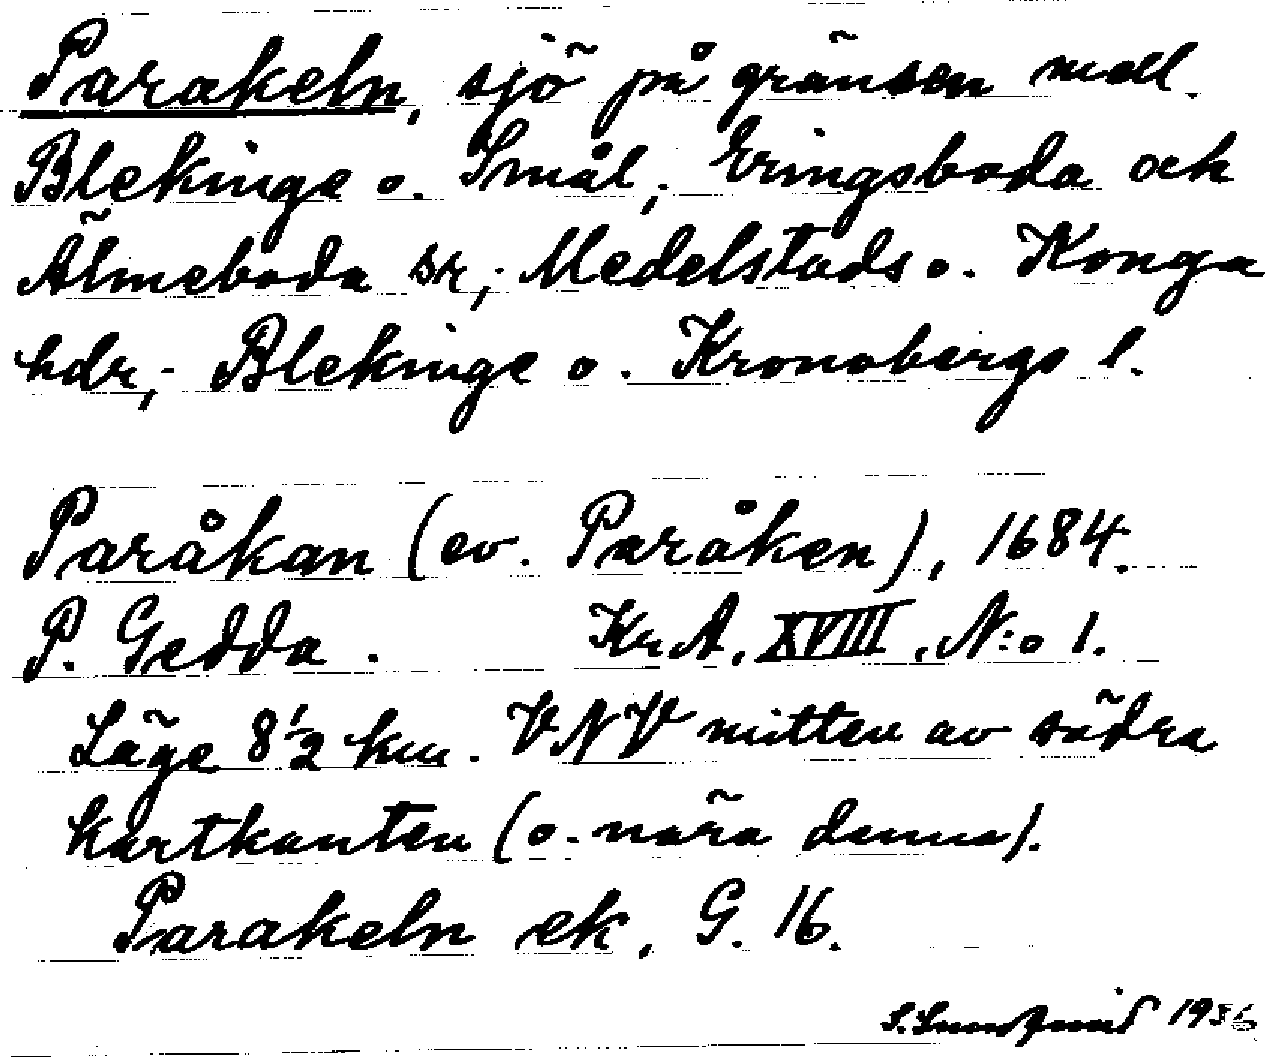 Parakeln, sjö på gränsen mell.
Blekinge o. Smål., Eringsboda och
Älmeboda sr, Medelstads o. Konga
hdr, Blekinge o. Kronobergs l.
Paråkan (ev. Paråken), 1684.
P. Gedda. KrA, XVIII, N:o 1.
Läge 8 1/2 km. VNV mitten av södra
kartkanten (o. nära denna).
Parakeln ek, G. 16.
S. 19